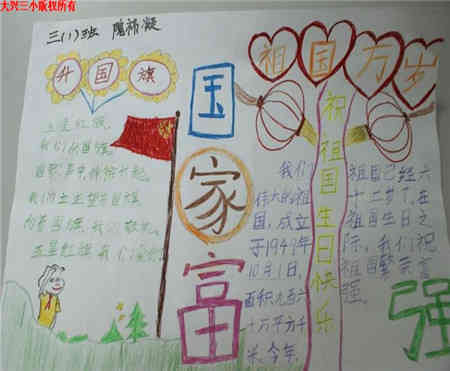 大兴三小版权所有
三(1)班
升国旗
五星红旗,
我们的国旗。
国歌声中
我们立正
五星红旗
国家富强
祖国万岁
祝祖国生日快乐
我们
伟大的祖
国,成立
于1949年
10月1日,
面积九百六
十万平方千
米,今年
祖国已经六
十二岁了,在
祖国生日之
际,我们祝
祖国繁荣富
强。